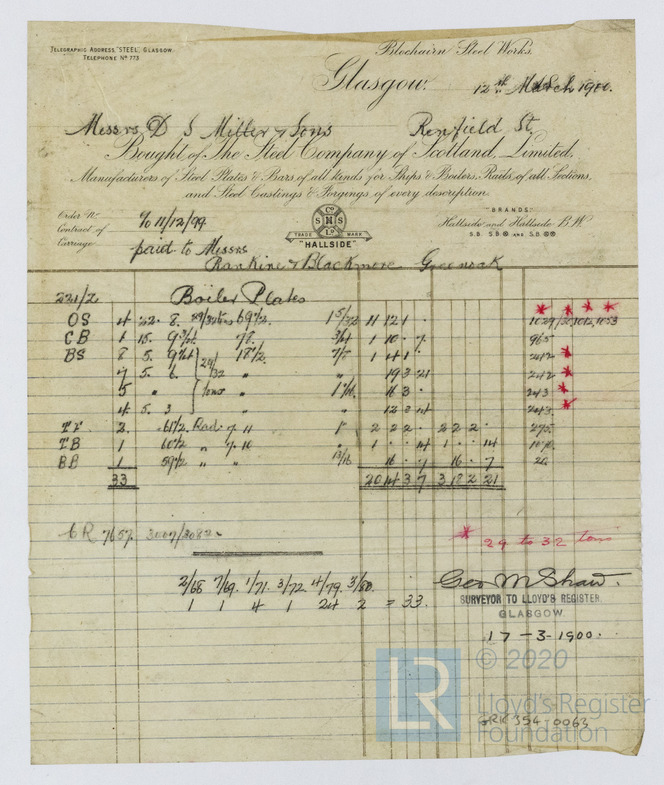 TELEGRAPHIC ADDRESS, "STEEL", GLASGOW.
TELEPHONE No 773
Blochairn Steel Works.
Glasgow. 12th March 1900.
Messrs D S Miller & Sons Renfield St.
Bought of The Steel Company of Scotland, Limited,
Manufacturers of Steel Plates & Bars of all kinds for Ships & Boilers, Rails of all Sections,
and Steel Castings & Forgings of every description.
Order No
Contract of % 11/12/99
Carriage paid to Messrs
Rankine & Blackmore Greenock
Co S H S Ld
TRADE MARK
"HALLSIDE"
"BRANDS"
Hallside and Hallside B.W.
S.B. S.B. AND S.B.
221/2 Boiler Plates
OS 4 22. 8. 29/32 tons 69 1/2. 1 5/32 11 12 1 .
CB 1 15. 1 10 . 7. 965
BS 8 5. 18 1/2. 7/8 1 4 1 242
7 5. 6. 29/32 19 3 21 242
5 " tons " 16 3 . 243
4 5. 3 " 12 2 14 243
TF 2. 61 1/2 Rad. 7. 11 1" 2 2 2 . 2 2 2 . 295
TB 1 60 1/2 " 7. 10 " 1 . . 14 1 . . 14
BB 1 59 1/2 " " 13/16 16 . 7 16 . 7
33 20 14 3 7 3 18 2 21
7657. 3007/3082.
* 29 to 32 tons
2/68 7/69. 1/71. 3/72. 4/79. 3/80.
1 1 4 1 24 2 = 33.
Geo M Shaw.
SURVEYOR TO LLOYD'S REGISTER,
GLASGOW.
17-3-1900.
© 2020
LR
Lloyd's Register
Foundation
GRK 354-0063